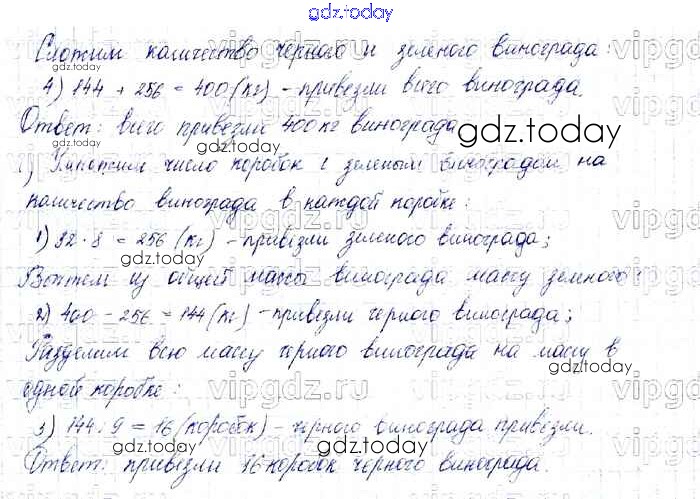 gdz.today
Сложим количество черного и зеленого винограда:
4) 144 + 256 = 400 (кг) - привезли всего винограда.
Ответ: всего привезли 400 кг винограда
1) Умножим число коробок с зеленым виноградом на
количество винограда в каждой коробке:
1) 32 · 8 = 256 (кг) - привезли зеленого винограда;
Вычтем из общей массы винограда массу зеленого
2) 400 - 256 = 144 (кг) - привезли черного винограда;
Разделим всю массу черного винограда на массу в
одной коробке:
3) 144 : 9 = 16 (коробок) - черного винограда привезли.
Ответ: привезли 16 коробок черного винограда.
gdz.today
gdz.today
gdz.today
gdz.today
gdz.today
gdz.today
gdz.today
gdz.today
vipgdz.ru
vipgdz.ru
vipgdz.ru
vipgdz.ru